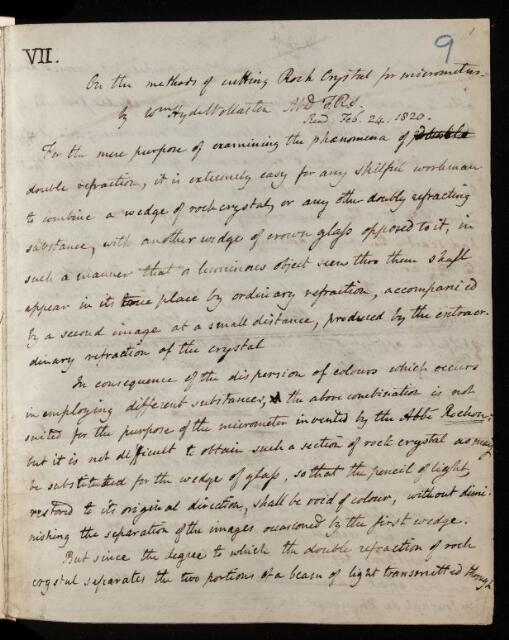 9
VII.
On the methods of cutting Rock Crystal for micrometers.
by Wm Hyde Wollaston M D F.R.S.
Read. Feb. 24. 1820.
For the mere purpose of examining the phænomena of double
double refraction, it is extremely easy for any skilful workman
to combine a wedge of rock crystal, or any other doubly refracting
substance, with another wedge of crown glass opposed to it, in
such a manner that a luminous object seen thro them shall
appear in it true place by ordinary refraction, accompanied
by a second image at a small distance, produced by the extraor-
dinary refraction of the crystal
In consequence of the dispersion of colours which occurs
in employing different substances, the above combination is not
suited for the purpose of the micrometer invented by the Abbé Rochon;
but it is not difficult to obtain such a section of rock crystal as may
be substituted for the wedge of glass, so that the pencil of light,
restored to its original direction, shall be void of colour, without dimi-
nishing the separation of the images occasioned by the first wedge.
But since the degree to which the double refraction of rock
crystal separates the two portions of a beam of light transmitted through